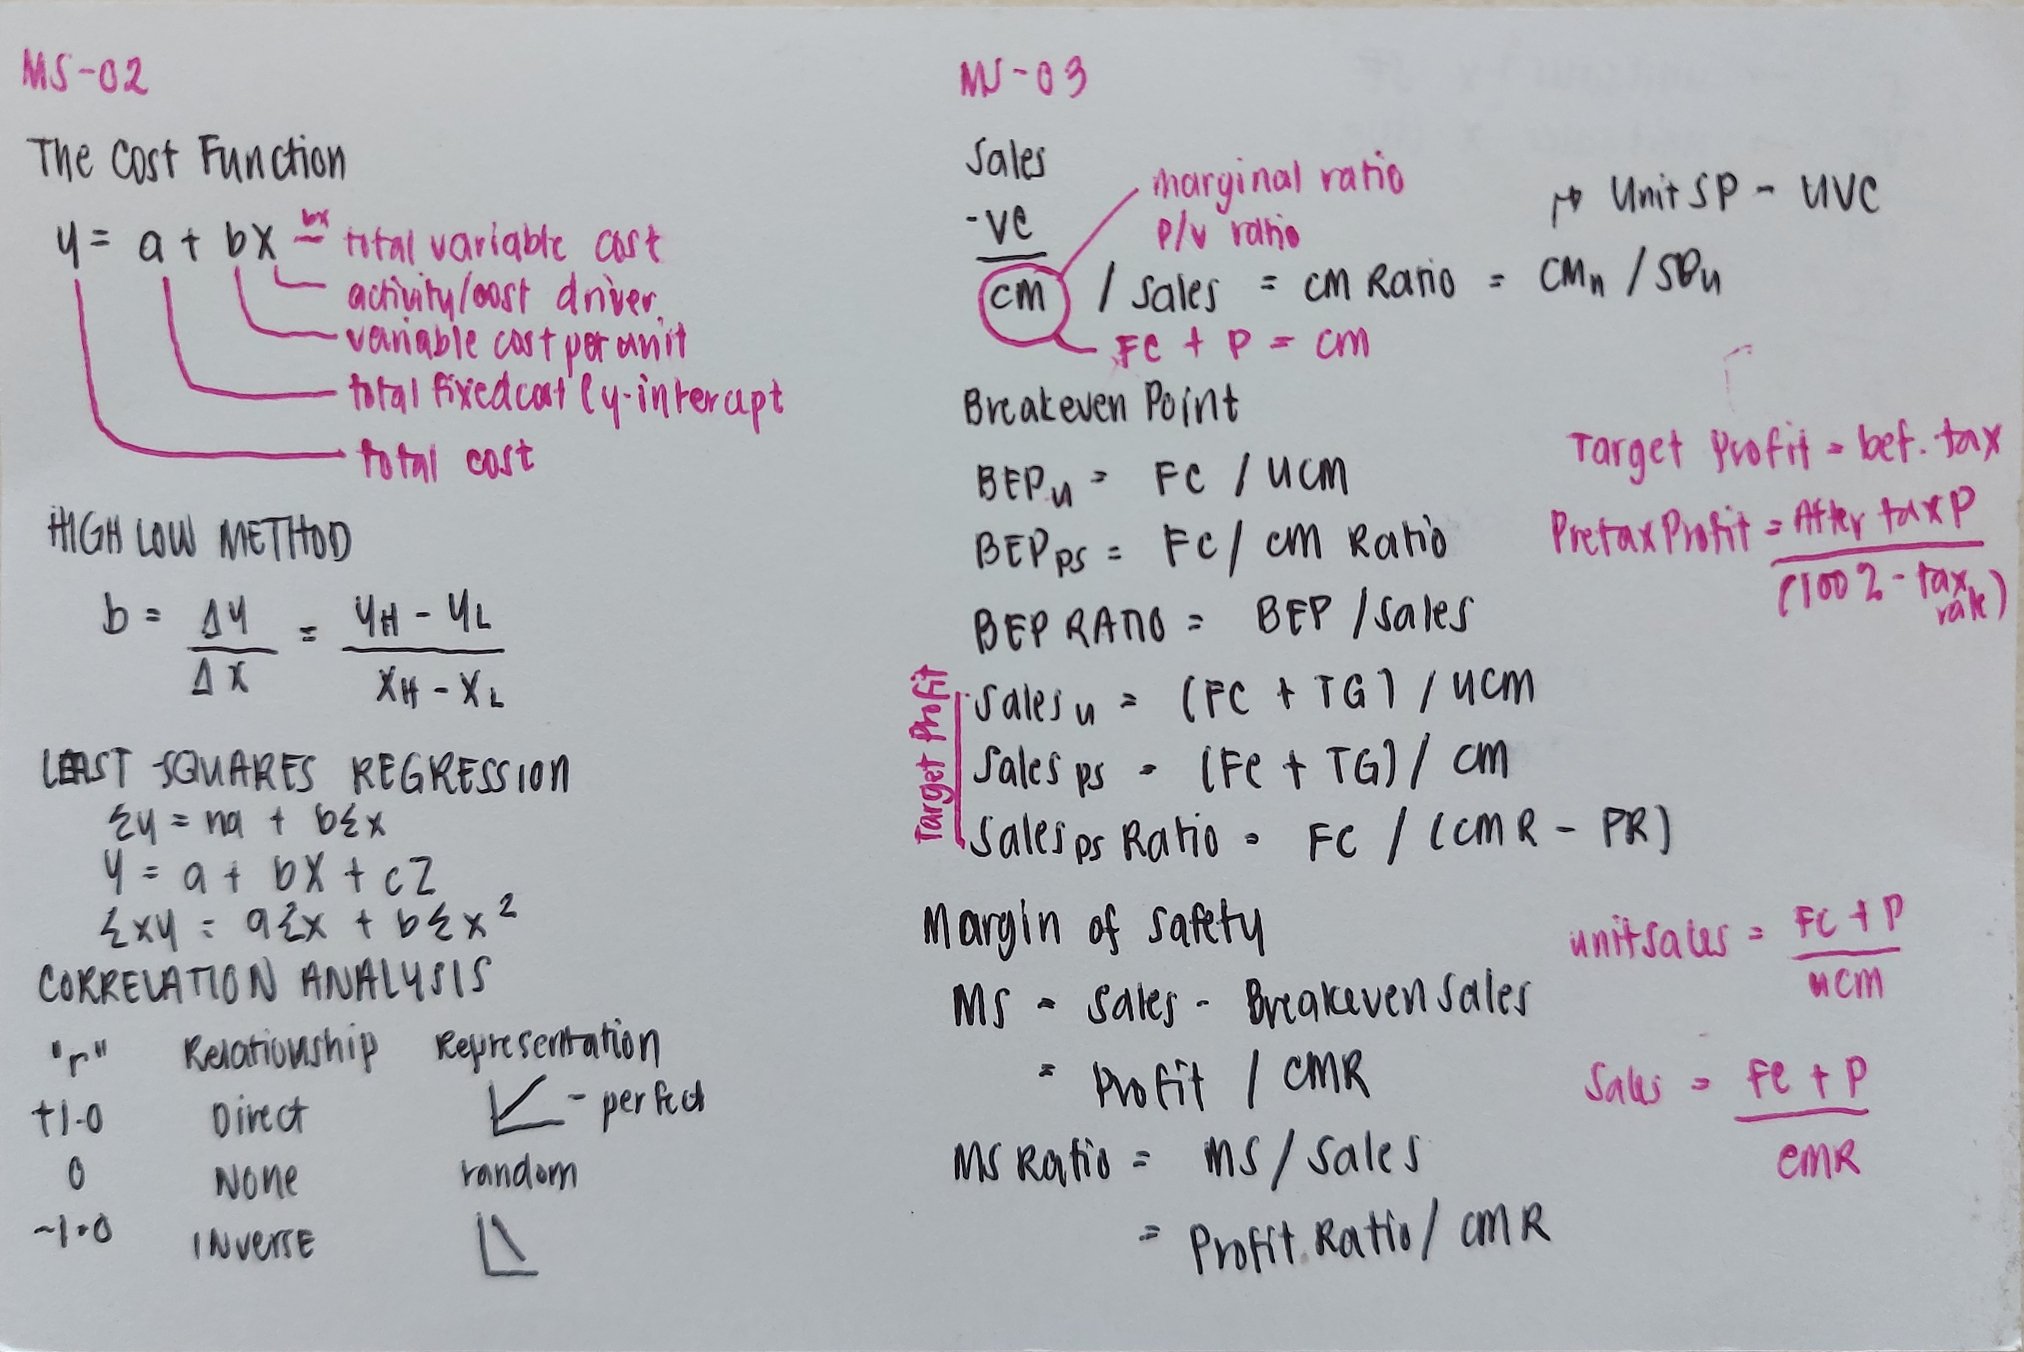 MS-02
The Cost Function
y = a + bx
bx
total variable cost
activity/cost driver.
variable cost per unit
total fixed cost (y-intercept
total cost
HIGH LOW METHOD
b = Δy / Δx = yH - yL / xH - xL
LEAST SQUARES REGRESSION
Σy = na + bΣx
y = a + bx + cz
Σxy = aΣx + bΣx²
CORRELATION ANALYSIS
"r" Relationship Representation
+1.0 Direct - perfect
0 None random
-1.0 Inverse
MS-03
Sales
-VC
marginal ratio
P/V ratio
Unit SP - UVC
CM / Sales = CM Ratio = CMu / SPu
FC + P = CM
Breakeven Point
BEPu = FC / UCM
BEPps = FC / CM Ratio
BEP RATIO = BEP / Sales
Target Profit = bef. tax
Pretax Profit = After tax P / (100% - tax rate)
Target Profit
Sales u = (FC + TG) / UCM
Sales ps = (FC + TG) / CM
Sales ps Ratio = FC / (CMR - PR)
Margin of Safety
MS = Sales - Breakeven Sales
= Profit / CMR
MS Ratio = MS / Sales
= Profit Ratio / CMR
unit sales = FC + P / UCM
Sales = FC + P / CMR